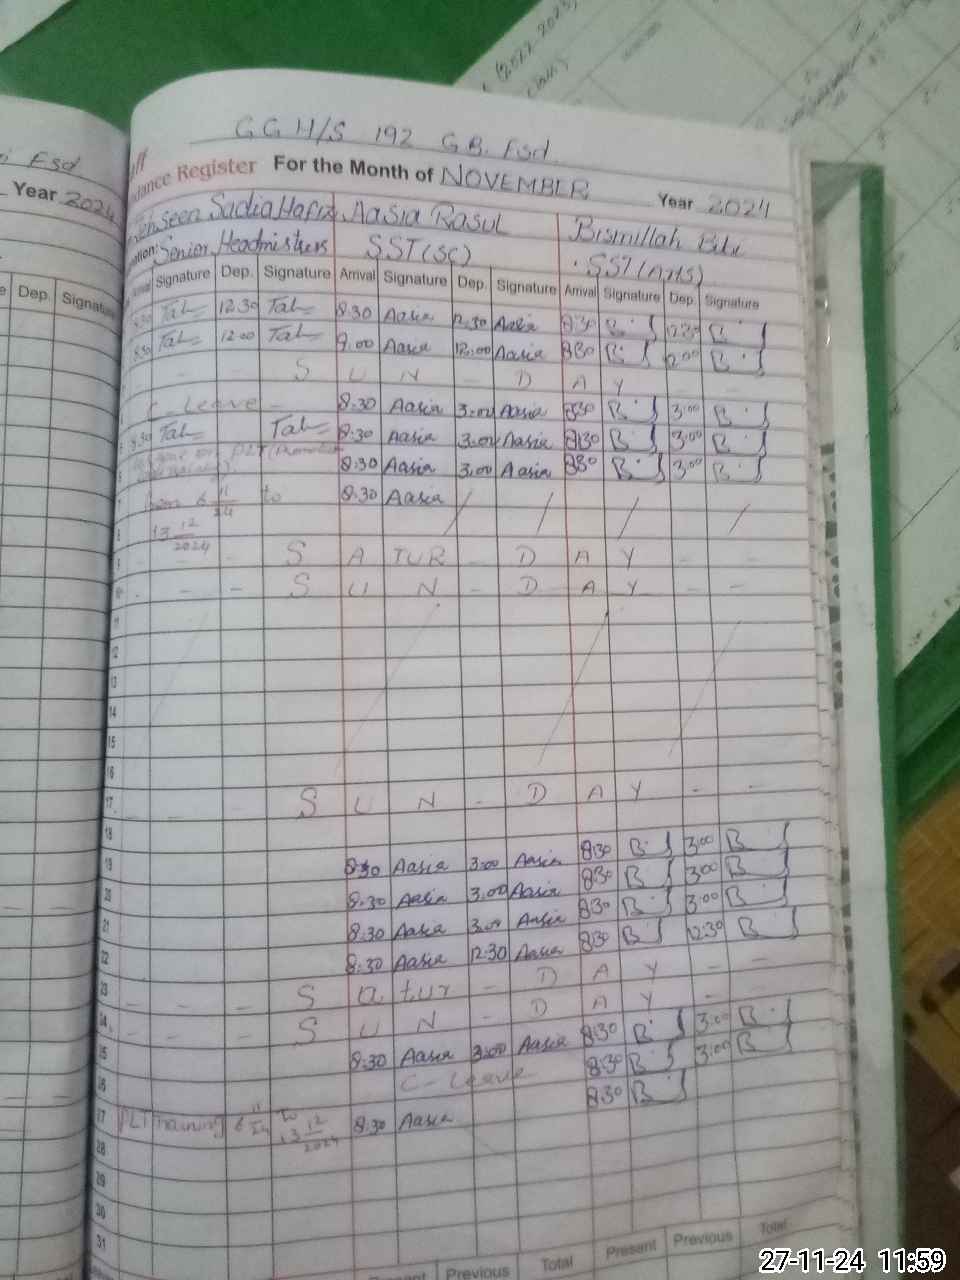 GGH/S 192 G.B. Fsd
Fsd
Year 2024
Register For the Month of NOVEMBER Year 2024
Sadia Hafiz Aasia Rasul Bismillah Bibi
Senior Headmistress SST(SC) SST(Arts)
Dep. Signature
Signature Dep. Signature Arrival Signature Dep. Signature Arrival Signature Dep. Signature
8:30 Tah 12:30 Tah 8:30 Aasia 12:30 Aasia 8:30 B 12:30 B
8:30 Tah 12:00 Tah 9:00 Aasia 12:00 Aasia 8:30 B 12:00 B
- - S U N - D A Y - -
C-Leave - 8:30 Aasia 3:00 Aasia 8:30 B 3:00 B
8:30 Tah Tah 8:30 Aasia 3:00 Aasia 8:30 B 3:00 B
8:30 Aasia 3:00 Aasia 8:30 B 3:00 B
7 from 6 11/24 to 8:30 Aasia / / / /
8 13 12/2024
9 - - S A TUR - D A Y - -
10 - - S U N - D A Y - -
11
12
13
14
15
16
17 - - S U N - D A Y - -
18
19 8:30 Aasia 3:00 Aasia 8:30 B 3:00 B
20 8:30 Aasia 3:00 Aasia 8:30 B 3:00 B
21 8:30 Aasia 3:00 Aasia 8:30 B 3:00 B
22 8:30 Aasia 12:30 Aasia 8:30 B 12:30 B
23 - - S a tur - D A Y - -
24 - - S U N - D A Y - -
25 8:30 Aasia 3:00 Aasia 8:30 B 3:00 B
26 C-Leave 8:30 B 3:00 B
27 PLT Training 6 11/24 to 13 12/2024 8:30 Aasia 8:30 B
28
29
30
31
Present Previous Total Present Previous Total
27-11-24 11:59